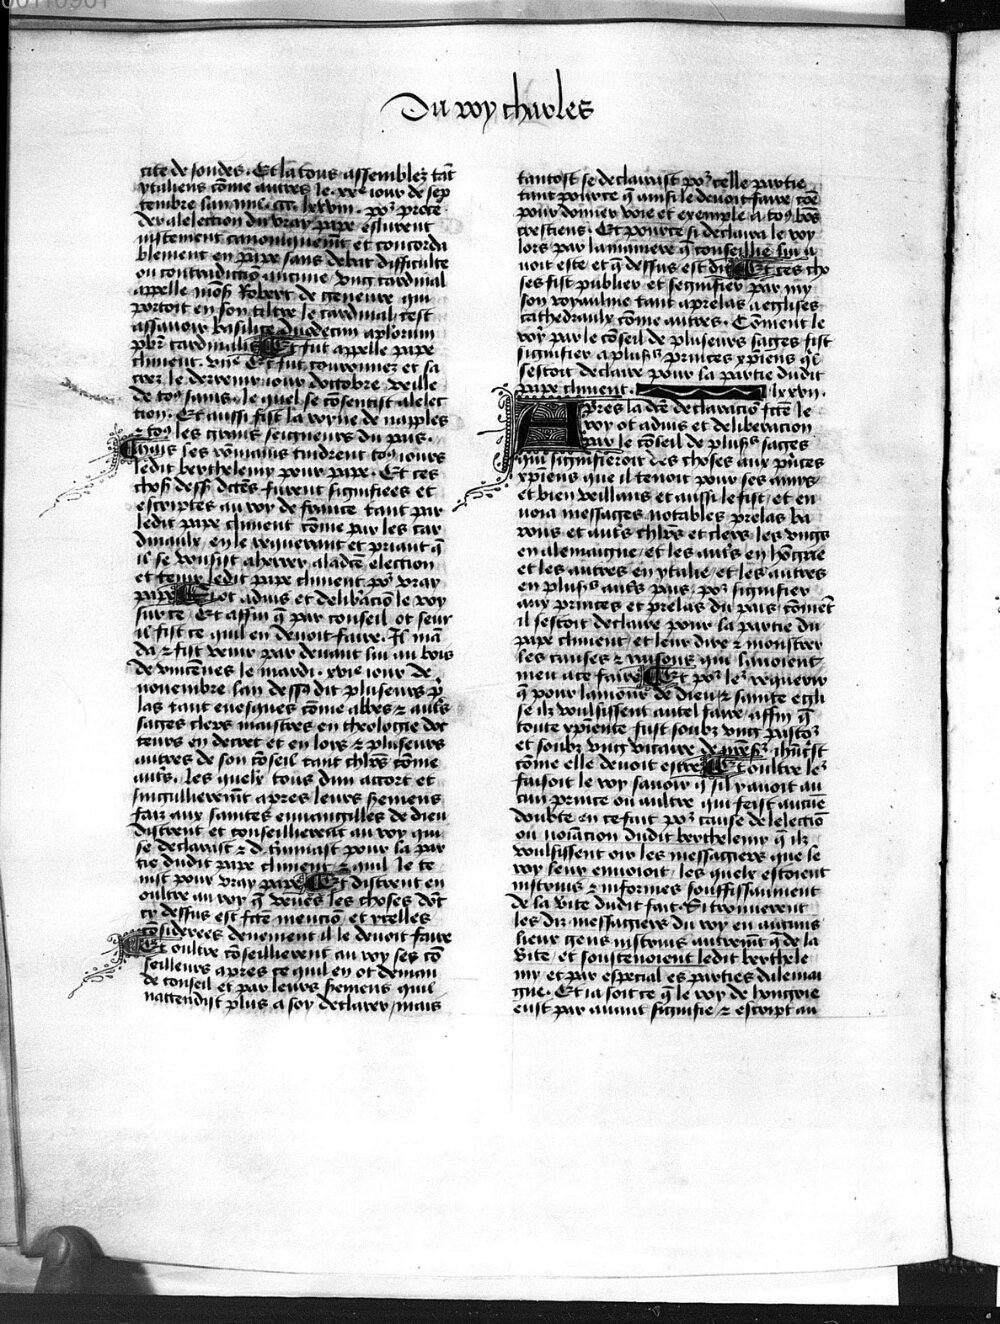 Du roy charles
cite de fondes. Et la tous assemblez tāt
ytaliens cōme autres le .xxe iour de sep
tembre lan mil. ccc lxxviii. pour proce
der a lelection du vray pape eslurent
iustement canoniquemēt et concorda
blement en pape sans debat difficulte
ou contradictiō aucune vng cardinal
appelle mōs Robert de geneure qui
portoit en son tiltre le cardinal cest
assauoir basilice duodecim aplorum
pbr̄ cardinalis Et fut appelle pape
climent. viie Et fut couronnez et sa
crez le derrenier iour doctobre veille
de toꝰ sains. le quel se cōsentist a lelec
tion. Et aussi fist la royne de napples
⁊ toꝰ les grans seigneurs du pais.
Mais les rōmains tindrent toꝰ iours
ledit berthelemy pour pape. Et ces
chos dess dctēs furent signifiees et
escriptes au roy de france tant par
ledit pape climent cōme par les car
dinaulx en le requerant et priant q̄
il se voulsist aherer a la dcē election
et tenir ledit pape climent poꝰ vray
pape Si ot aduis et deliberaciō le roy
sur ce. Et affin q̄ par conseil et seur
il fist ce quil en deuoit faire. Il mā
da ⁊ fist venir par deuant lui au bois
de vincēnes le mardi .xvie iour de
nouembre lan dessꝰ dit plusieurs p̄
las tant euesques cōme abbes ⁊ autꝰs
sages clers maistres en theologie doc
teurs en decret et en loys ⁊ plusieurs
autres de son cōseil tant chlr̄s cōme
autꝰs. Les quelx tous dun accort et
singulieremēt apres leurs sermens
faiz aux saintes euuangilles de dieu
distrent et conseillierent au roy qui
se declarast ⁊ d. fininast pour la par
tie dudit pape climent ⁊ quil le te
nist pour vray pape Et distrent en
oultre au roy q̄ veues les choses dōt
cy dessus est fctē menciō et ycelles
cōsiderees deuement il le deuoit faire
Et oultre cōseillierent au roy ses cō
seilleurs apres ce quil en ot demāde
de conseil et par leurs sermens quil
nattendist plus a soy declarer/mais
tantost se declairast poꝰ celle partie
tant pource q̄ ainsi le deuoit faire cōe
pour donner voie et exemple a toꝰ bōs
crestiens. Et pource si declaira le roy
lors par la maniere q̄ conseillie lui a
uoit este et q̄ dessus est dit Et ces cho
ses fist publier et segnifier par my
son royaulme tant a prelas a eglises
cathedraulx cōme autres. Cōment le
roy par le cōseil de plusieurs sages fist
signifier a plusꝰ princes xpiens q̄l
sestoit declaire pour la partie dudit
pape climent. lxxvii.
Apres la dcē declaraciō fctē le
roy ot aduis et deliberacion
par le cōseil de plusꝰs sages
qui signifieroit les choses aux p̄nces
xpiens que il tenoit pour ses amis
et bien veillans et aussi le fist/et en
uoia messages notables prelas ba
rons et autꝰs chlr̄s et clers les vngs
en alemaigne/et les autꝰs en hōgrie
et les autres en ytalie/et les autres
en plusꝰs autꝰs pais. poꝰ signifier
aux princes et prelas du pais cōment
il sestoit declaire pour la partie du
pape climent/et leur dire ⁊ monstrer
les causes ⁊ raisons qui lauoient
meu a ce faire Et poꝰ leꝰ requerir
q̄ pour lamour de dieu ⁊ sainte egli
se ilz voulsissent autel faire affin q̄
toute xpiente fust soubz vng pastoꝰ
et soubz vng vicaire de nr̄esꝰ ihūcrist
cōme elle deuoit estre Et oultre leꝰ
faisoit le roy sauoir q̄ sil y auoit au
cun prince ou aultre qui feist aucūe
doubte en ce fait poꝰ cause de lelectiō
ou nōiacion dudit berthelemy q̄ ilz
voulsissent oir les messagiers que le
roy leur enuoioit/les quelx estoient
instruis ⁊ informes souffissaument
de la vite dudit fait. Si trouuerent
les diz messagiers du roy en aucuns
lieux gens instruis autremēt q̄ de la
vite/ et soustenoient ledit berthele
my et par especial es parties dalemai
gne. Et ia soit ce q̄ le roy de hongrie
eust par auant signifie ⁊ escript au